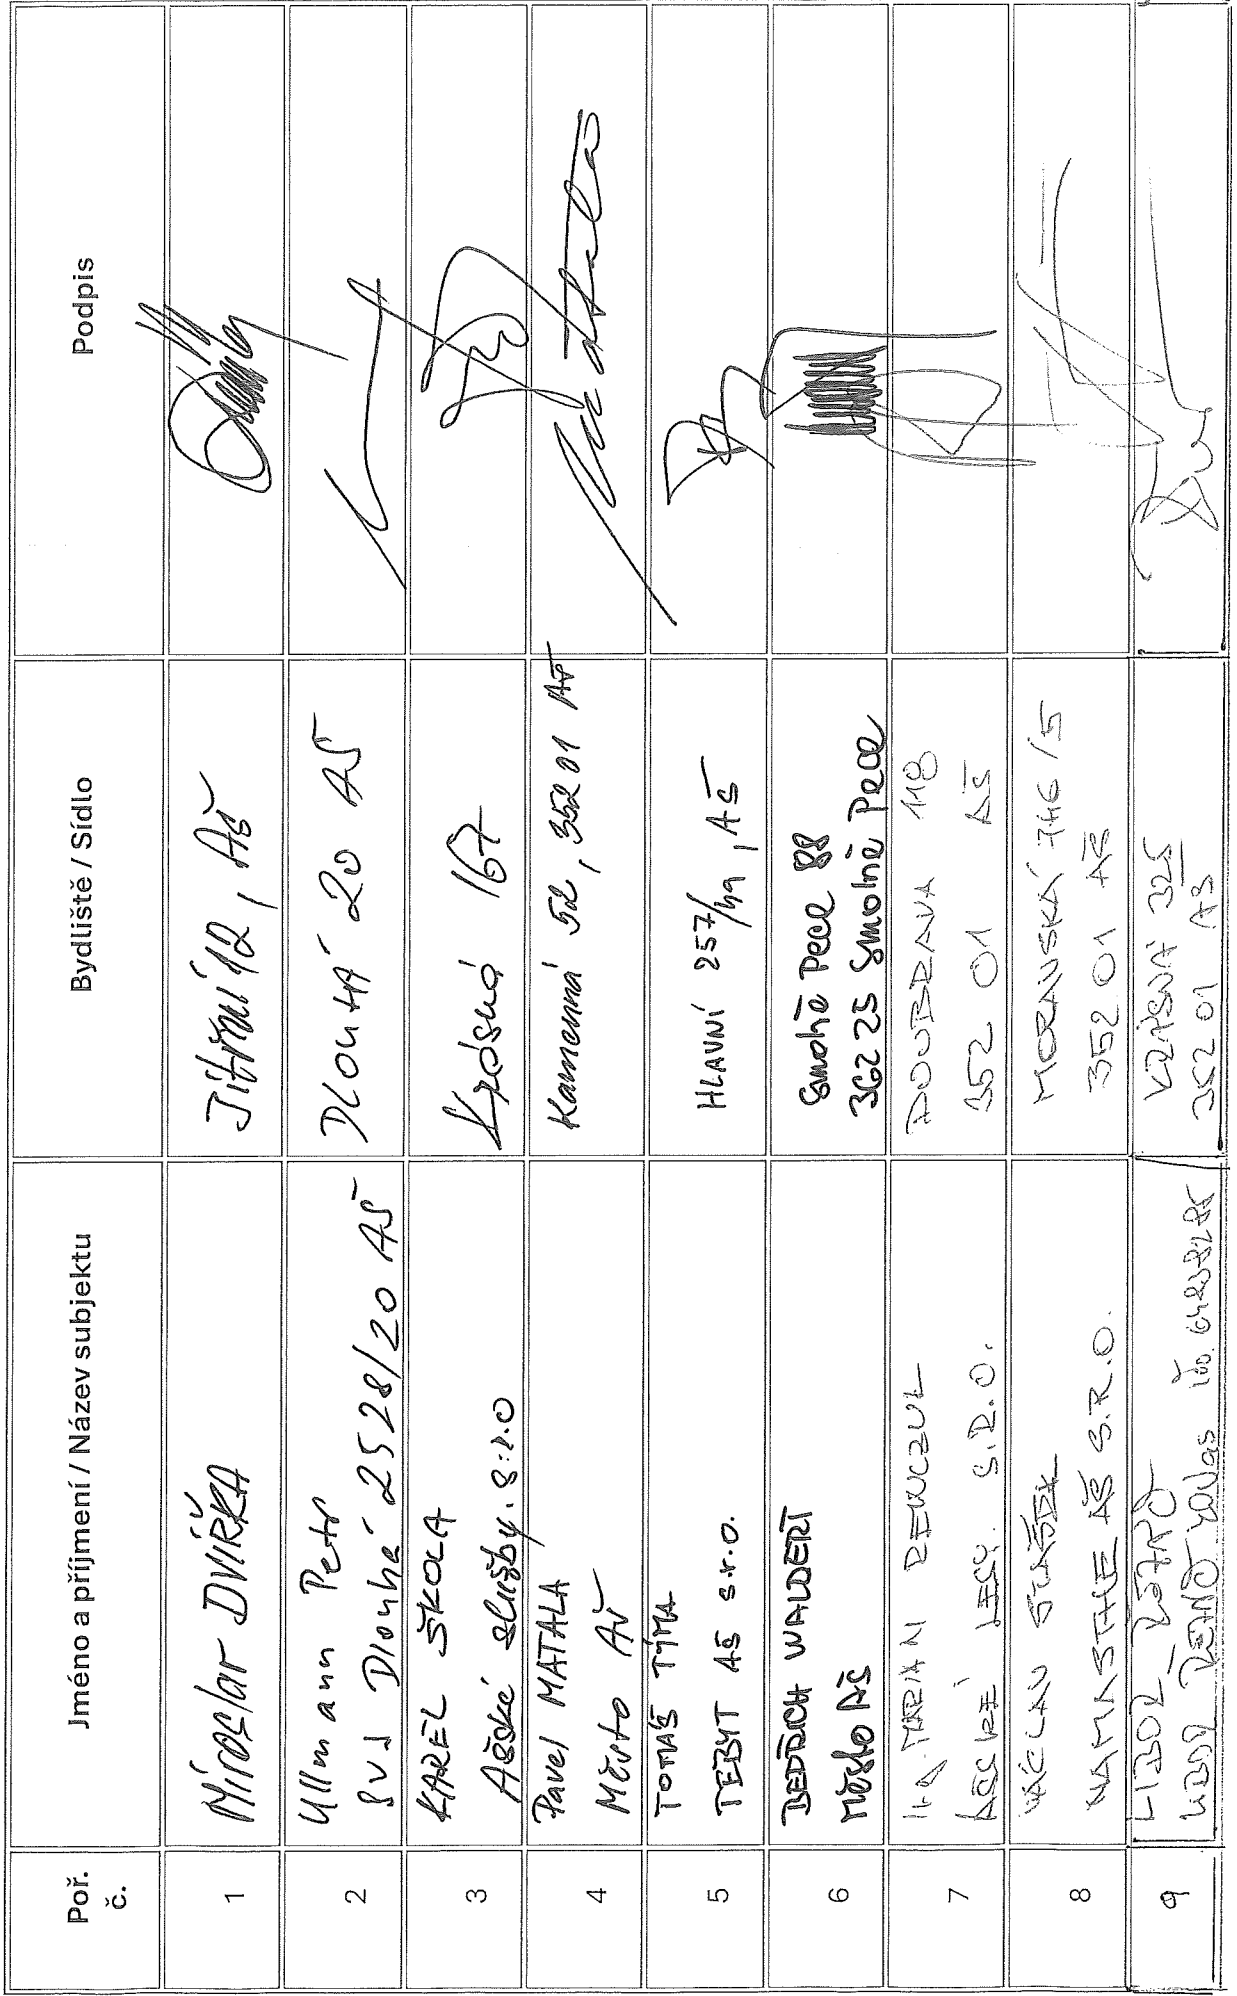 Poř. č.
Jméno a příjmení / Název subjektu
Bydliště / Sídlo
Podpis
1
Miroslav DVIŘKA
Jitřní 12, Aš
2
Ullmann Petr
SVJ Dlouhá 2528/20 AŠ
DLOUHÁ 20 AŠ
3
KAREL ŠKOLA
Ašské služby s.r.o
Krásná 167
4
Pavel MATALA
Město Aš
Kamenná 52, 352 01 Aš
5
TOMÁŠ TÝMA
TEBYT AŠ s.r.o.
HLAVNÍ 257/49, AŠ
6
BEDŘICH WALDERT
Město AŠ
Smolné Pece 88
362 25 Smolné Pece
7
MARIAN
AŠSKÉ LESY S.R.O.
DOUBRAVA 118
352 01 AŠ
8
VÁCLAV
NAMASTHE AŠ S.R.O.
MORAVSKÁ 746/5
352 01 AŠ
9
LIBOR
LIBOR
KRÁSNÁ 325
352 01 AŠ